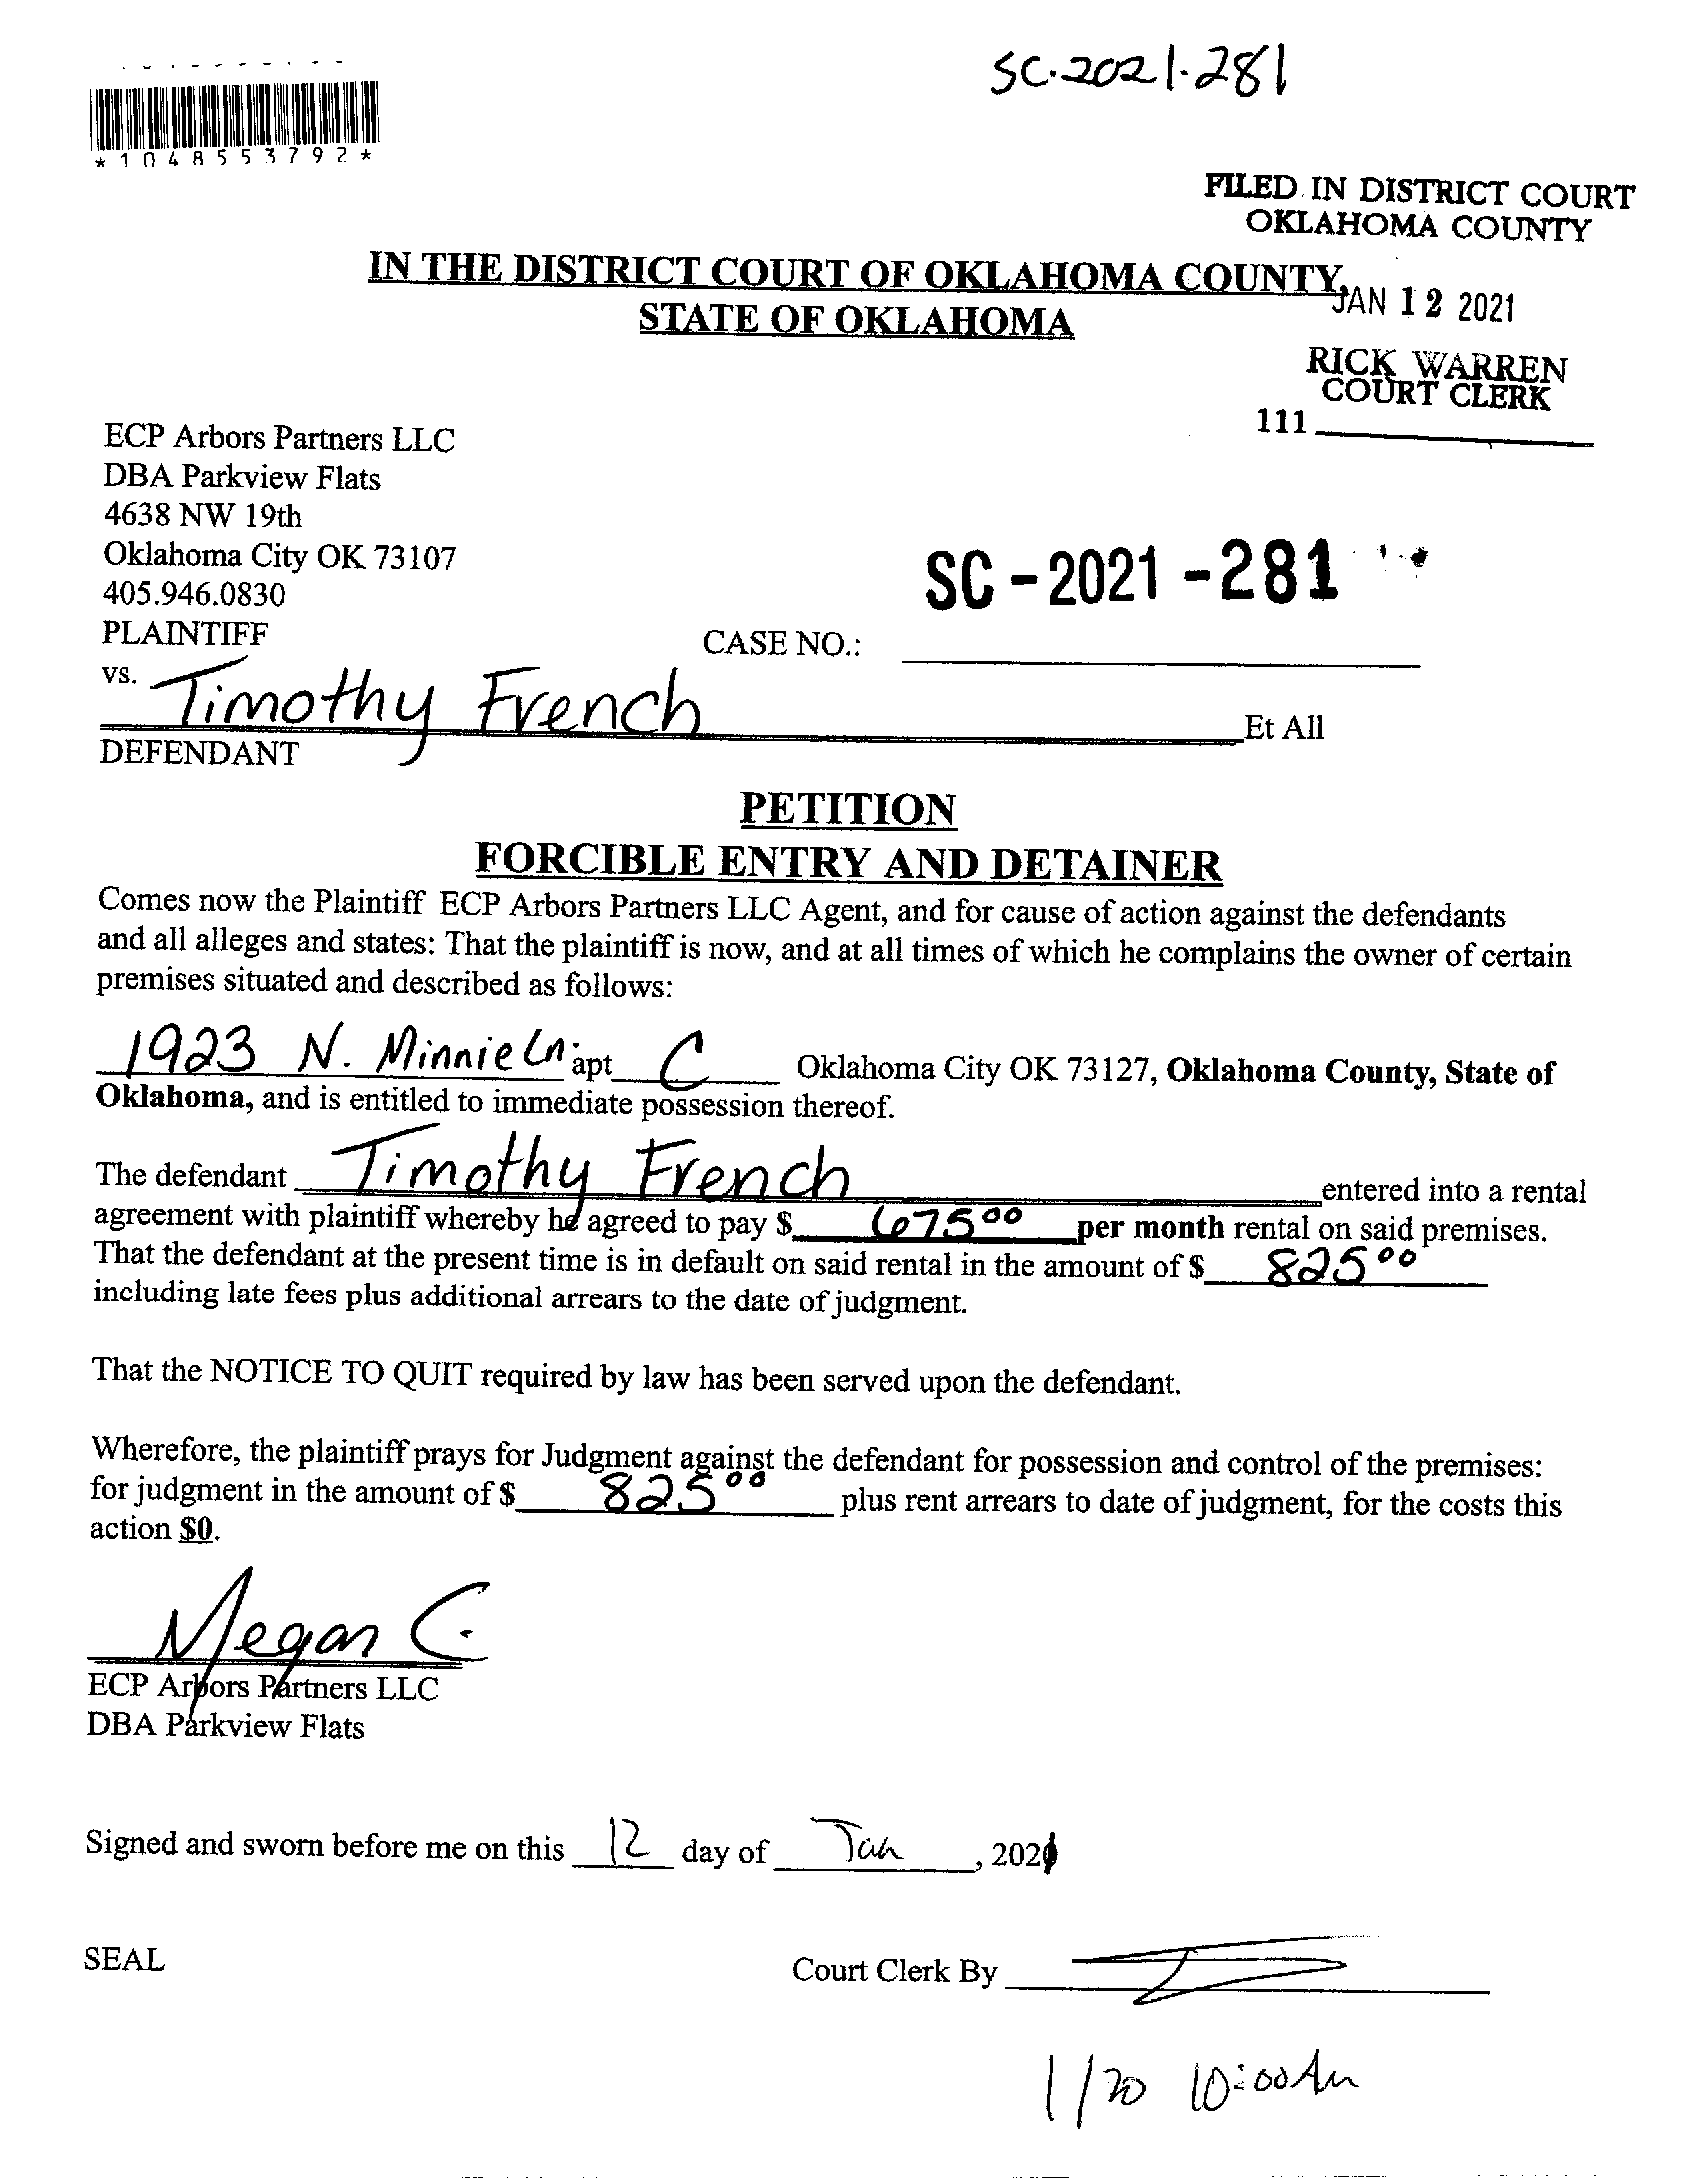 SC-2021-281
*1048553792*
FILED IN DISTRICT COURT
OKLAHOMA COUNTY
IN THE DISTRICT COURT OF OKLAHOMA COUNTY,
STATE OF OKLAHOMA
JAN 12 2021
RICK WARREN
COURT CLERK
111
ECP Arbors Partners LLC
DBA Parkview Flats
4638 NW 19th
Oklahoma City OK 73107
405.946.0830
PLAINTIFF
SC-2021-281
CASE NO.:
vs.
Timothy French Et All
DEFENDANT
PETITION
FORCIBLE ENTRY AND DETAINER
Comes now the Plaintiff ECP Arbors Partners LLC Agent, and for cause of action against the defendants
and all alleges and states: That the plaintiff is now, and at all times of which he complains the owner of certain
premises situated and described as follows:
1923 N. Minnie Ln. apt C Oklahoma City OK 73127, Oklahoma County, State of
Oklahoma, and is entitled to immediate possession thereof.
The defendant Timothy French entered into a rental
agreement with plaintiff whereby he agreed to pay $ 675 00 per month rental on said premises.
That the defendant at the present time is in default on said rental in the amount of $ 825 00
including late fees plus additional arrears to the date of judgment.
That the NOTICE TO QUIT required by law has been served upon the defendant.
Wherefore, the plaintiff prays for Judgment against the defendant for possession and control of the premises:
for judgment in the amount of $ 825 00 plus rent arrears to date of judgment, for the costs this
action $0.
Megan C.
ECP Arbors Partners LLC
DBA Parkview Flats
Signed and sworn before me on this 12 day of Jan, 2021
SEAL
Court Clerk By
1/20 10:00 Am